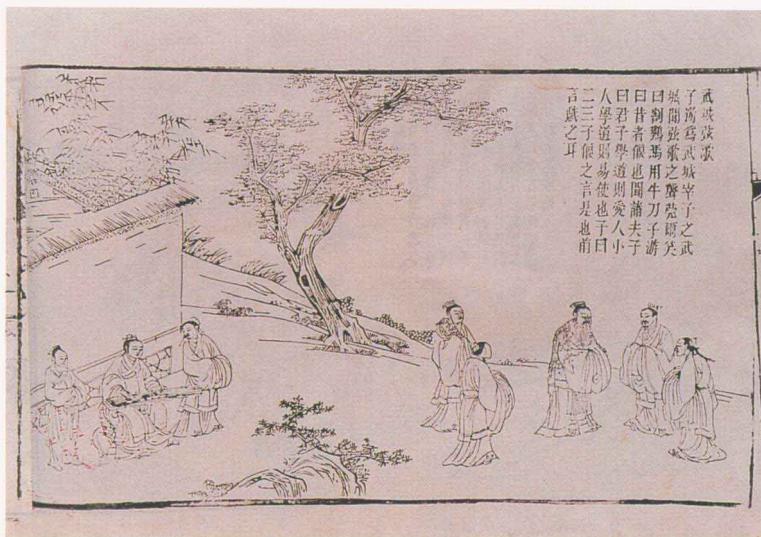 武城弦歌
子游為武城宰子之武
城聞弦歌之聲莞爾笑
曰割鷄焉用牛刀子游
曰昔者偃也聞諸夫子
曰君子學道則愛人小
人學道則易使也子曰
二三子偃之言是也前
言戲之耳